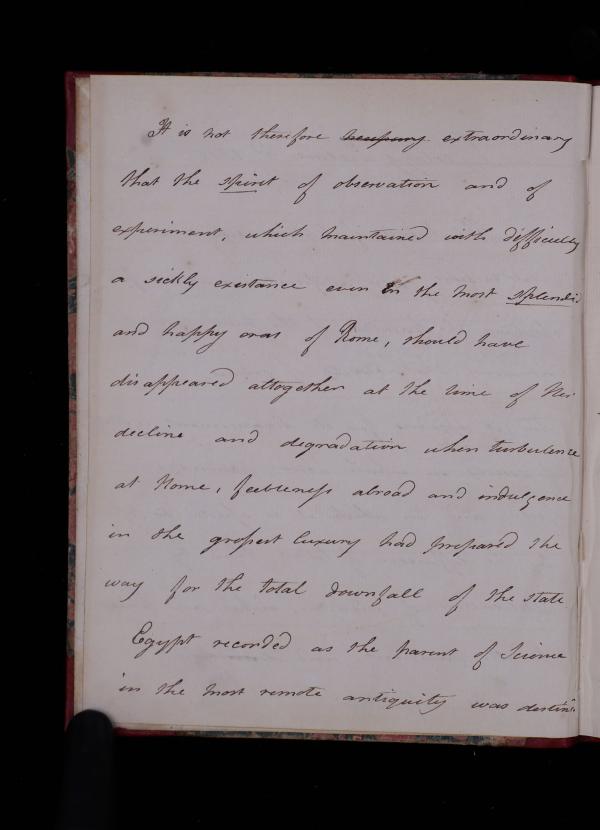 It is not therefore necessary extraordinary
that the spirit of observation and of
experiment, which maintained with difficulty
a sickly existance even in the most splendid
and happy eras of Rome, should have
disappeared altogether at the time of
decline and degradation when turbulence
at Home, feebleness abroad and indulgence
in the grossest luxury had prepared the
way for the total downfall of the state
Egypt recorded as the parent of Science
in the most remote antiquity was